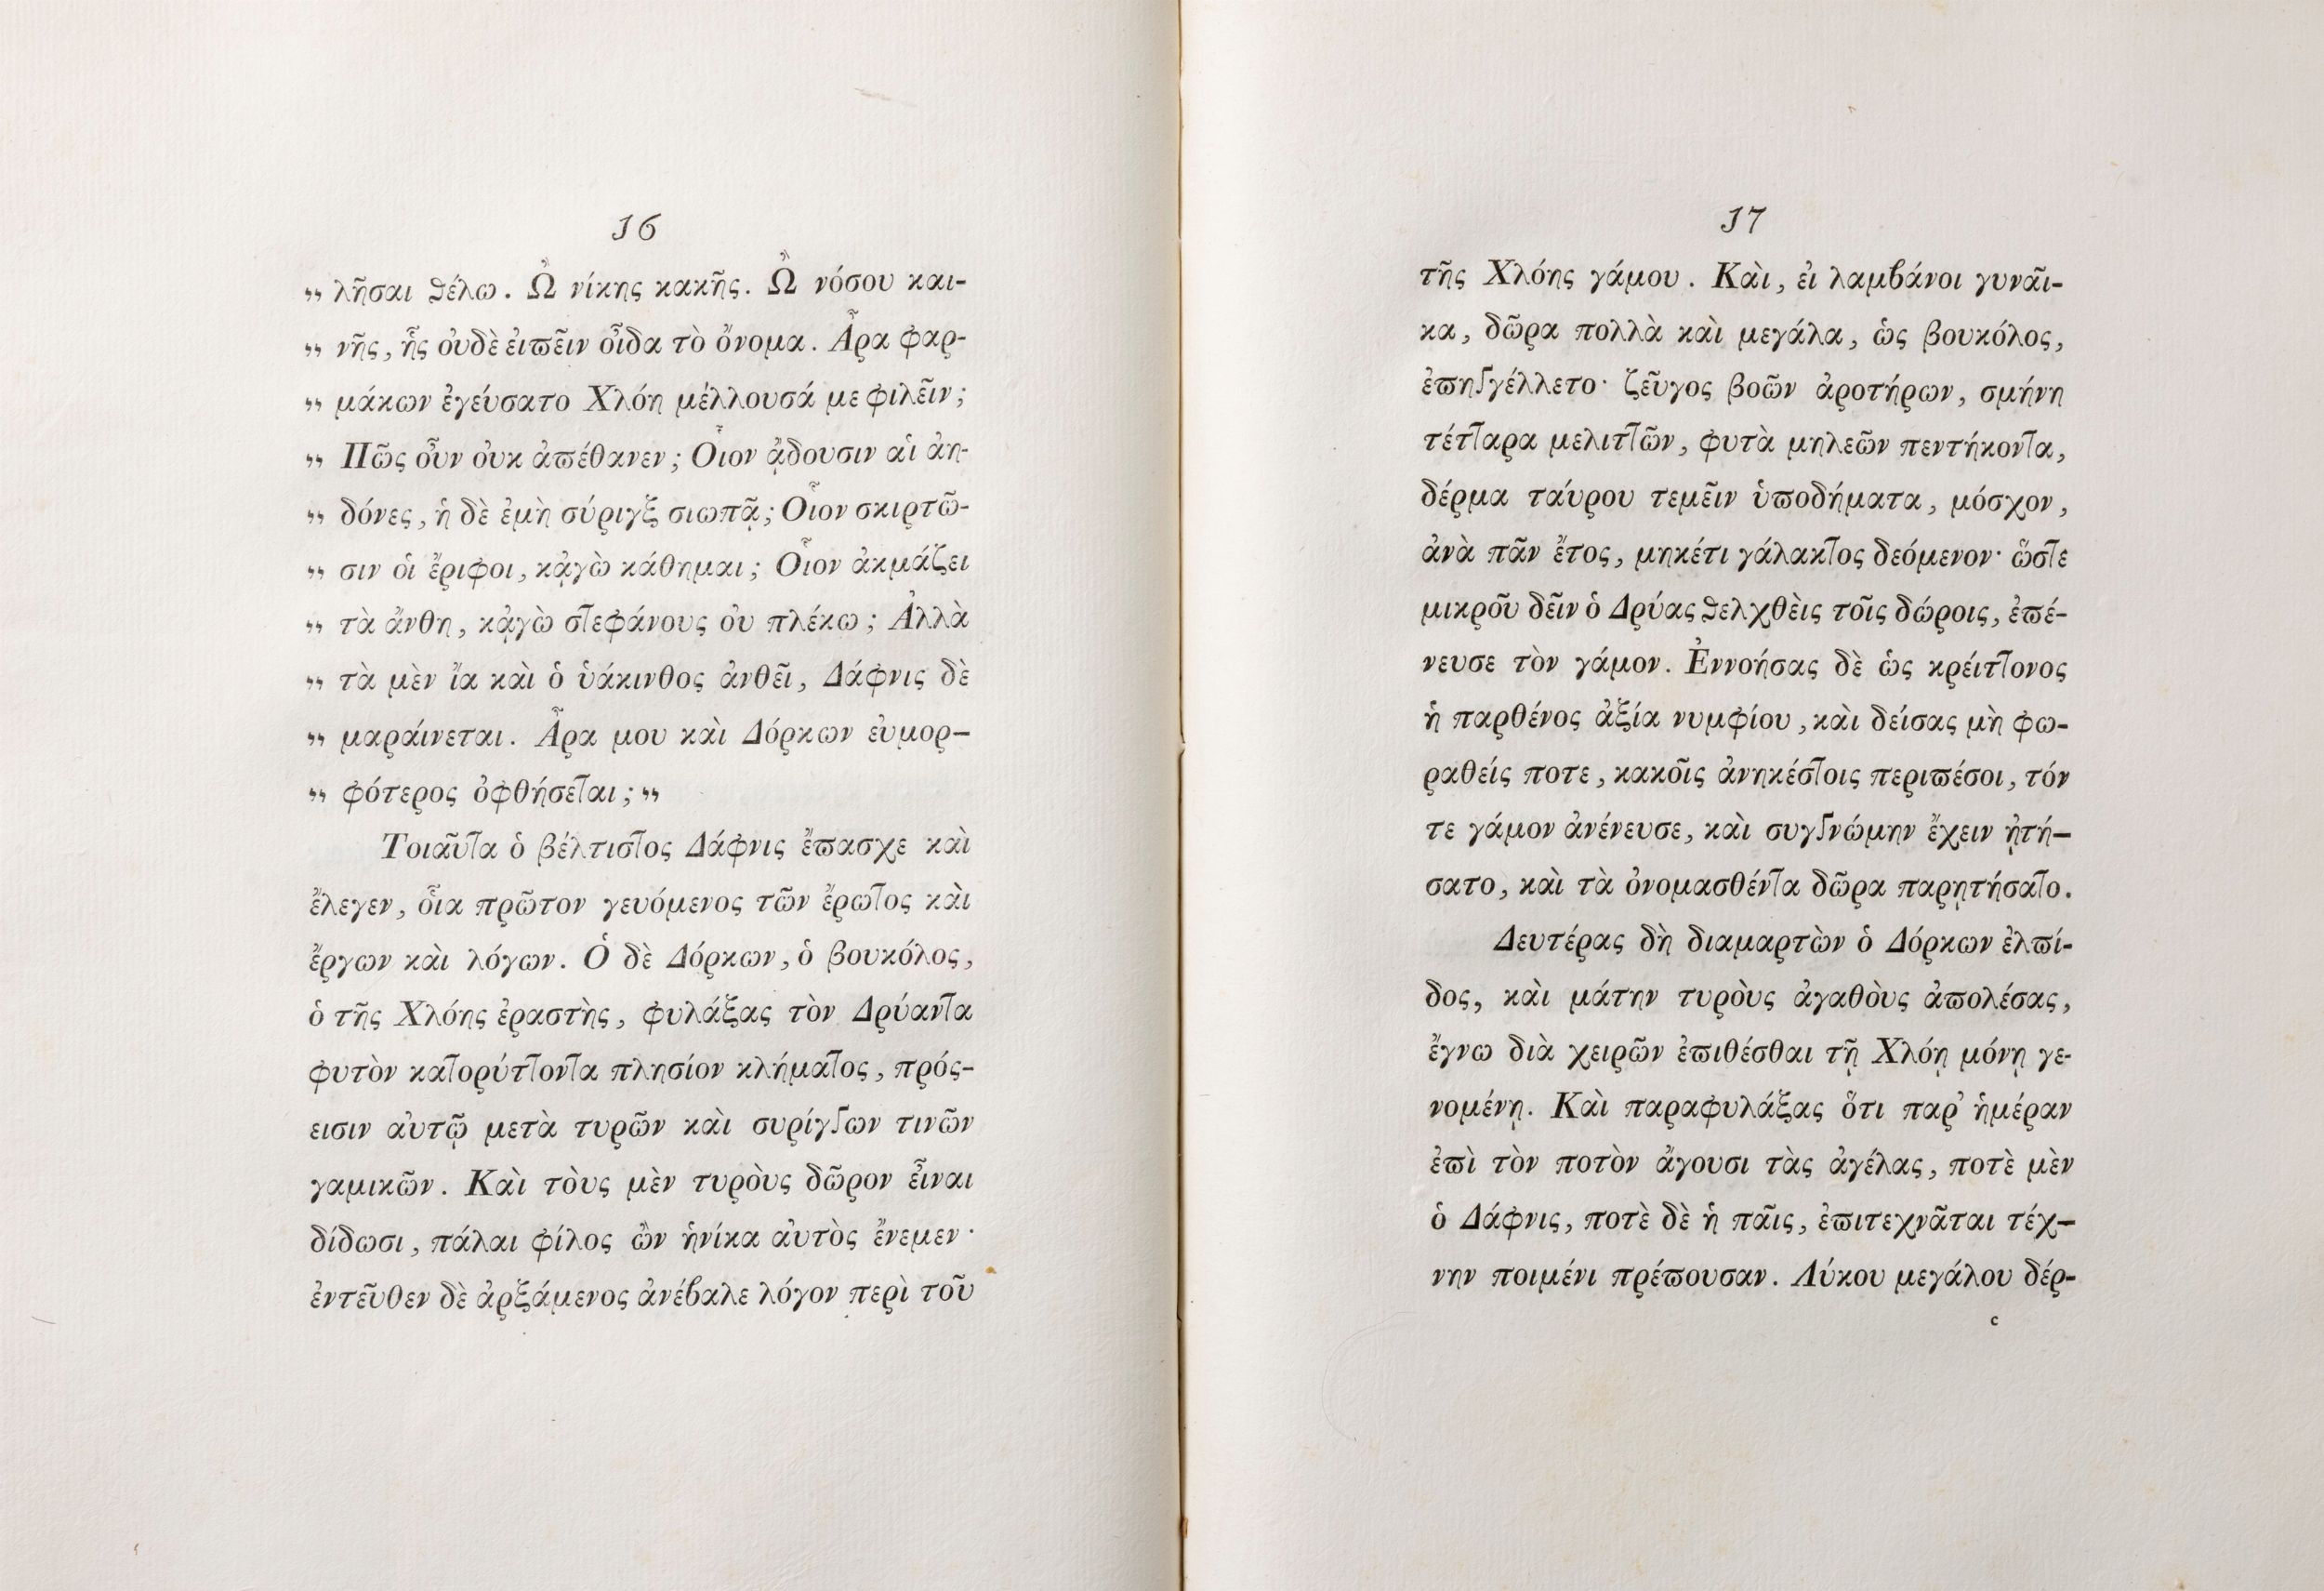 16
„ λῆσαι θέλω. Ὢ νίκης κακῆς. Ὢ νόσου και-
„ νῆς, ἧς ὀυδὲ ἐιπεῖν οἶδα τὸ ὄνομα. Ἆρα φαρ-
„ μάκων ἐγέυσατο Χλόη μέλλουσά με φιλεῖν;
„ Πῶς οὖν ὀυκ ἀπέθανεν; Οἷον ᾄδουσιν αἱ ἀη-
„ δόνες, ἡ δὲ ἐμὴ σύριγξ σιωπᾷ; Οἷον σκιρτῶ-
„ σιν οἱ ἔριφοι, κᾀγὼ κάθημαι; Οἷον ἀκμάζει
„ τὰ ἄνθη, κᾀγὼ στεφάνους ὀυ πλέκω; Ἀλλὰ
„ τὰ μὲν ἴα καὶ ὁ ὑάκινθος ἀνθεῖ, Δάφνις δὲ
„ μαράινεται. Ἆρα μου καὶ Δόρκων ἐυμορ-
„ φότερος ὀφθήσεται; „
Τοιαῦτα ὁ βέλτιστος Δάφνις ἔπασχε καὶ
ἔλεγεν, οἷα πρῶτον γευόμενος τῶν ἔρωτος καὶ
ἔργων καὶ λόγων. Ὁ δὲ Δόρκων, ὁ βουκόλος,
ὁ τῆς Χλόης ἐραστὴς, φυλάξας τὸν Δρύαντα
φυτὸν κατορύττοντα πλησίον κλήματος, πρός-
εισιν ἀυτῷ μετὰ τυρῶν καὶ συρίγγων τινῶν
γαμικῶν. Καὶ τὸυς μὲν τυρὸυς δῶρον εἶναι
δίδωσι, πάλαι φίλος ὢν ἡνίκα ἀυτὸς ἔνεμεν·
ἐντεῦθεν δὲ ἀρξάμενος ἀνέβαλε λόγον περὶ τοῦ
17
τῆς Χλόης γάμου. Καὶ, ἐι λαμβάνοι γυναῖ-
κα, δῶρα πολλὰ καὶ μεγάλα, ὡς βουκόλος,
ἐπηγγέλλετο· ζεῦγος βοῶν ἀροτήρων, σμήνη
τέτταρα μελιττῶν, φυτὰ μηλεῶν πεντήκοντα,
δέρμα τάυρου τεμεῖν ὑποδήματα, μόσχον,
ἀνὰ πᾶν ἔτος, μηκέτι γάλακτος δεόμενον· ὥστε
μικροῦ δεῖν ὁ Δρύας θελχθὲις τοῖς δώροις, ἐπέ-
νευσε τὸν γάμον. Ἐννοήσας δὲ ὡς κρέιττονος
ἡ παρθένος ἀξία νυμφίου, καὶ δείσας μὴ φω-
ραθείς ποτε, κακοῖς ἀνηκέστοις περιπέσοι, τόν
τε γάμον ἀνένευσε, καὶ συγγνώμην ἔχειν ᾐτή-
σατο, καὶ τὰ ὀνομασθέντα δῶρα παρῃτήσατο.
Δευτέρας δὴ διαμαρτὼν ὁ Δόρκων ἐλπί-
δος, καὶ μάτην τυρὸυς ἀγαθὸυς ἀπολέσας,
ἔγνω διὰ χειρῶν ἐπιθέσθαι τῇ Χλόῃ μόνῃ γε-
νομένῃ. Καὶ παραφυλάξας ὅτι παρ᾽ ἡμέραν
ἐπὶ τὸν ποτὸν ἄγουσι τὰς ἀγέλας, ποτὲ μὲν
ὁ Δάφνις, ποτὲ δὲ ἡ παῖς, ἐπιτεχνᾶται τέχ-
νην ποιμένι πρέπουσαν. Λύκου μεγάλου δέρ-
c